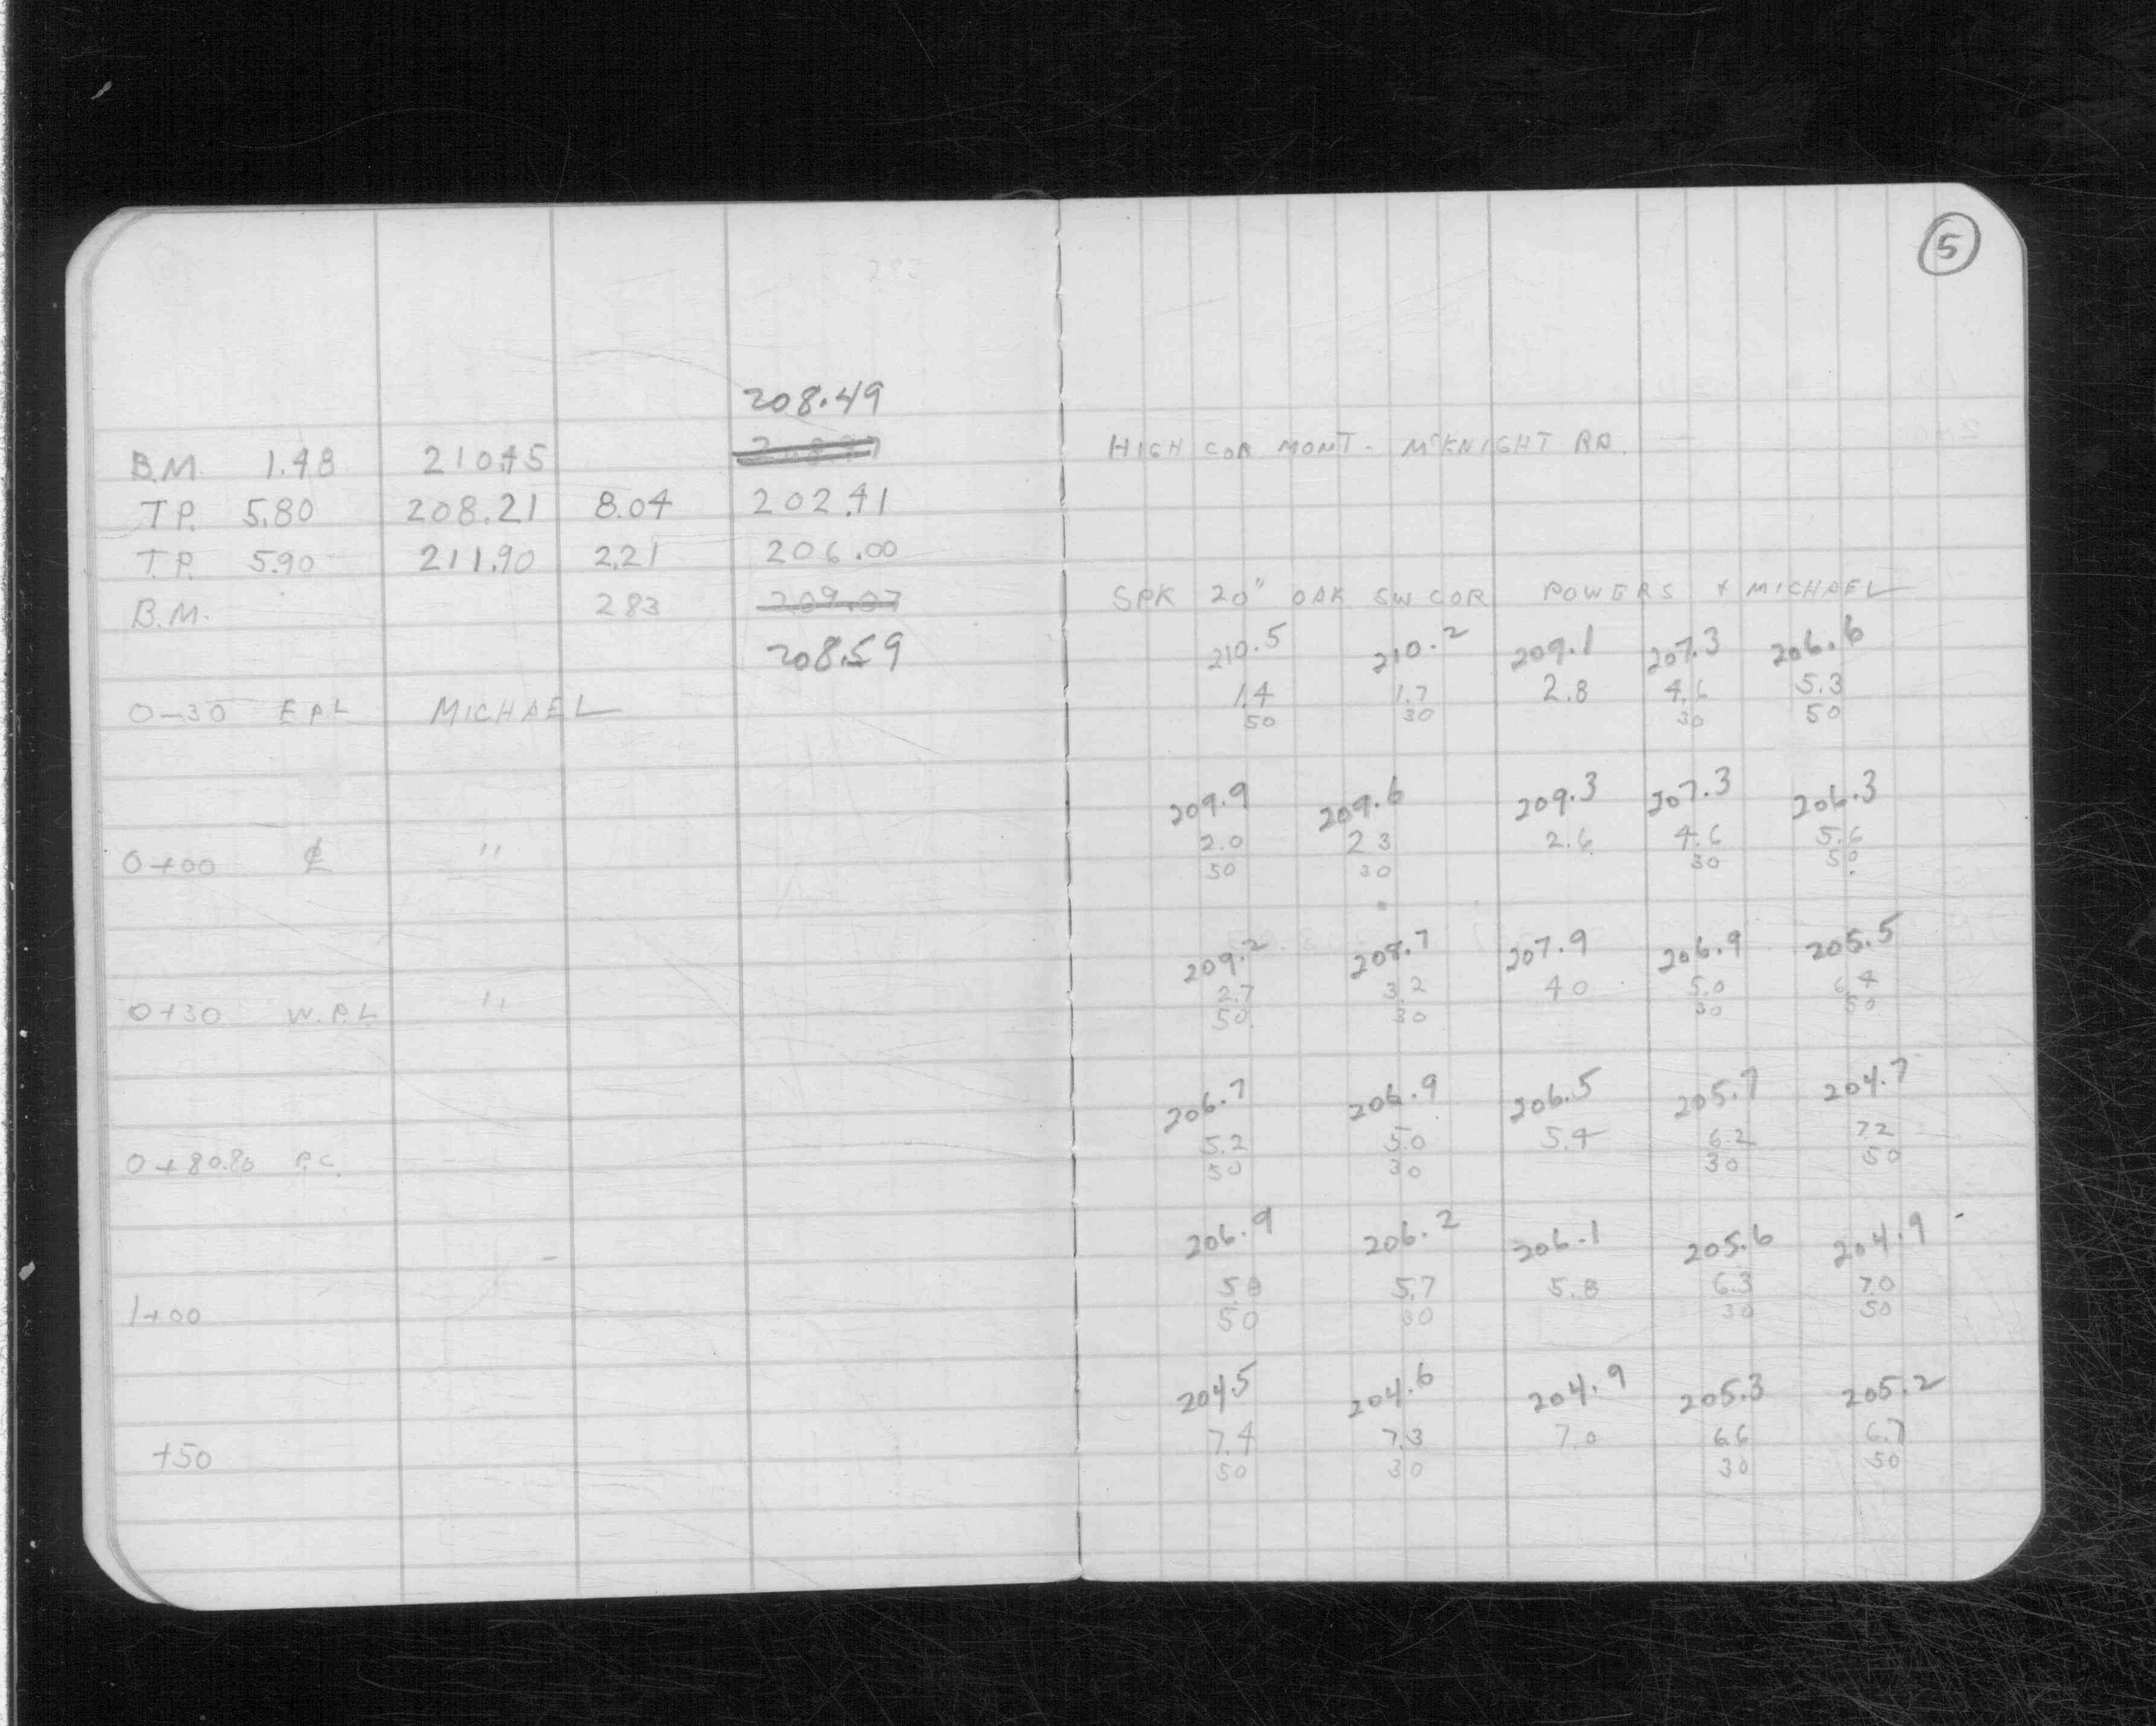 5
208.49
B.M. 1.48 210.45 HIGH COR MONT. McKNIGHT RD.
T.P. 5.80 208.21 8.04 202.41
T.P. 5.90 211.90 2.21 206.00
B.M. 2.83 209.07 SPK 20" OAK SW COR POWERS + MICHAEL
208.59 210.5 210.2 209.1 207.3 206.6
0-30 E P.L MICHAEL 1.4 1.7 2.8 4.6 5.3
50 30 30 50
209.9 209.6 209.3 207.3 206.3
0+00 ℄ " 2.0 2.3 2.6 4.6 5.6
50 30 30 50
209.2 208.7 207.9 206.9 205.5
0+30 W.P.L. " 2.7 3.2 4.0 5.0 6.4
50 30 30 50
206.7 206.9 206.5 205.7 204.7
0+80.80 P.C. 5.2 5.0 5.4 6.2 7.2
50 30 30 50
206.9 206.2 206.1 205.6 204.9
1+00 5.8 5.7 5.8 6.3 7.0
50 30 30 50
204.5 204.6 204.9 205.3 205.2
+50 7.4 7.3 7.0 6.6 6.7
50 30 30 50